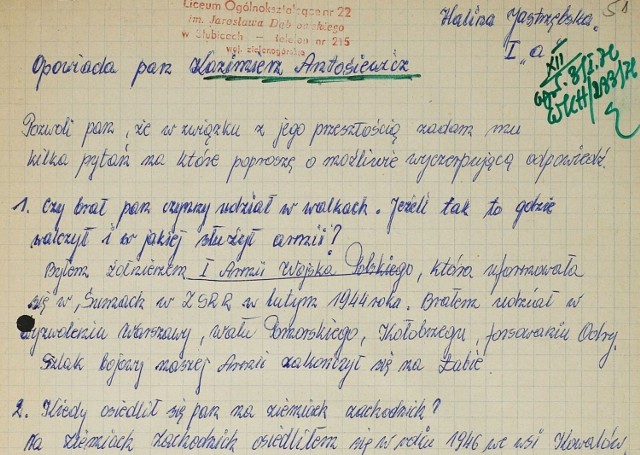 Liceum Ogólnokształcące nr 22
im. Jarosława Dąbrowskiego
w Słubicach — telefon nr 215
woj. zielonogórskie
Halina Jastrzębska.
I „a"
51
XII
8/I.76
WKH/283/76
Opowiada pan Kazimierz Antosiewicz
Pozwoli pan, że w związku z jego przeszłością zadam mu
kilka pytań na które poproszę o możliwie wyczerpującą odpowiedź.
1. Czy brał pan czynny udział w walkach. Jeżeli tak to gdzie
walczył i w jakiej służył armii?
Byłem żołnierzem I Armii Wojska Polskiego, która uformowała
się w Sumach w ZSRR w lutym 1944 roku. Brałem udział w
wyzwoleniu Warszawy, wału Pomorskiego, Kołobrzegu, forsowaniu Odry.
Szlak bojowy naszej Armii zakończył się na Łabie.
2. Kiedy osiedlił się pan na ziemiach zachodnich?
Na ziemiach zachodnich osiedliłem się w roku 1946 we wsi Kowalów.